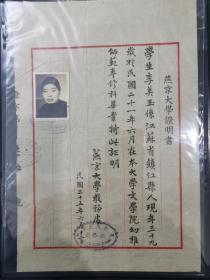 燕京大學證明書
學生李美玉係江蘇省鎮江縣人現年三十九
歲於民國二十一年六月在本大學文學院幼稚
師範專修科畢業特此證明
燕京大學教務處
民國二十五年六月